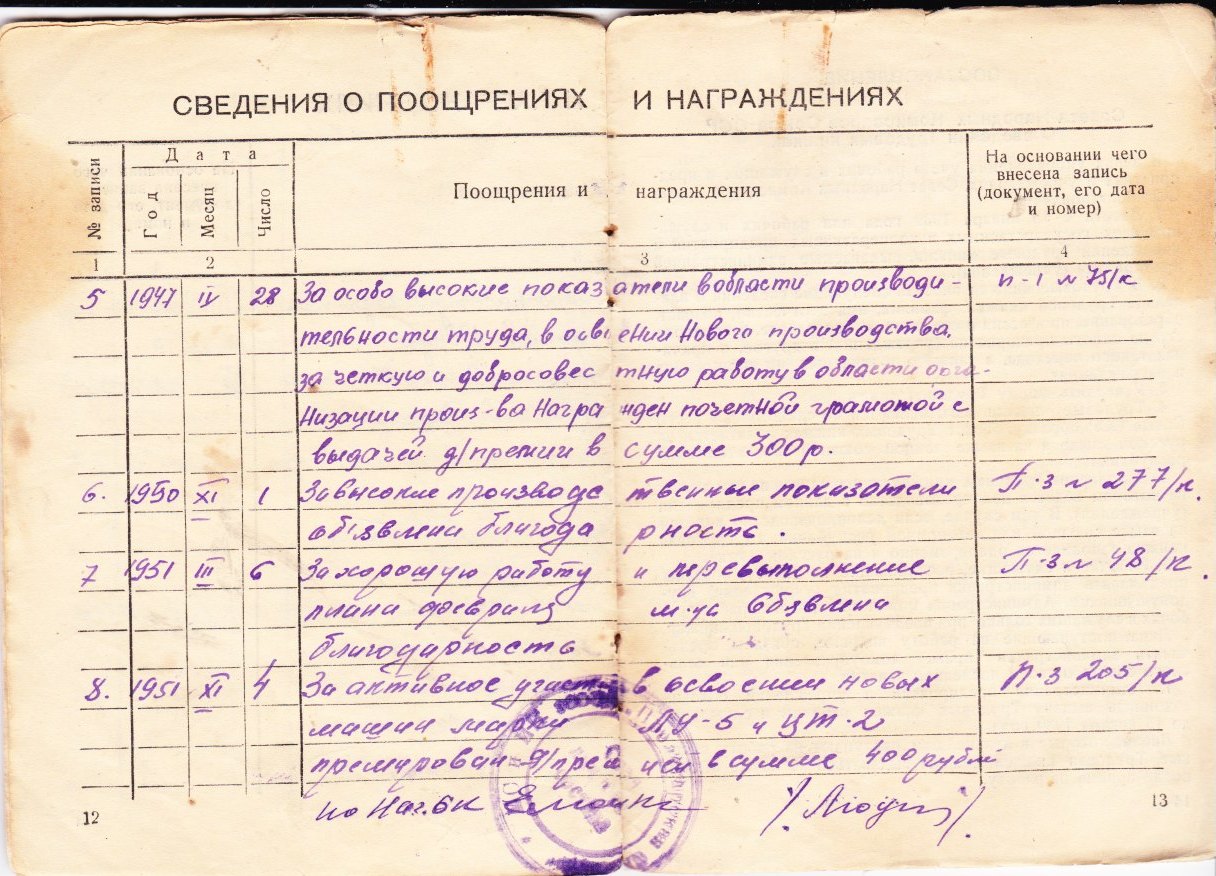 СВЕДЕНИЯ О ПООЩРЕНИЯХ И НАГРАЖДЕНИЯХ
№ записи
Дата
Год
Месяц
Число
Поощрения и награждения
На основании чего
внесена запись
(документ, его дата
и номер)
1 2 3 4
5 1947 IV 28 За особо высокие показатели в области производи- п-1 № 75/к
тельности труда, в освоении нового производства,
за четкую и добросовестную работу в области орга-
низации произ-ва награжден почетной грамотой с
выдачей д/премии в сумме 300 р.
6. 1950 XI 1 За высокие производственные показатели П-3 № 277/к.
объявлена благодарность.
7 1951 III 6 За хорошую работу и перевыполнение П-3 № 48/к.
плана февраля м-ца объявлена
благодарность
8. 1951 XI 4 За активное участие в освоении новых П-3 205/к
машин марки ЛУ-5 и ЦТ-2
премирован д/премией в сумме 400 рублей
12
13